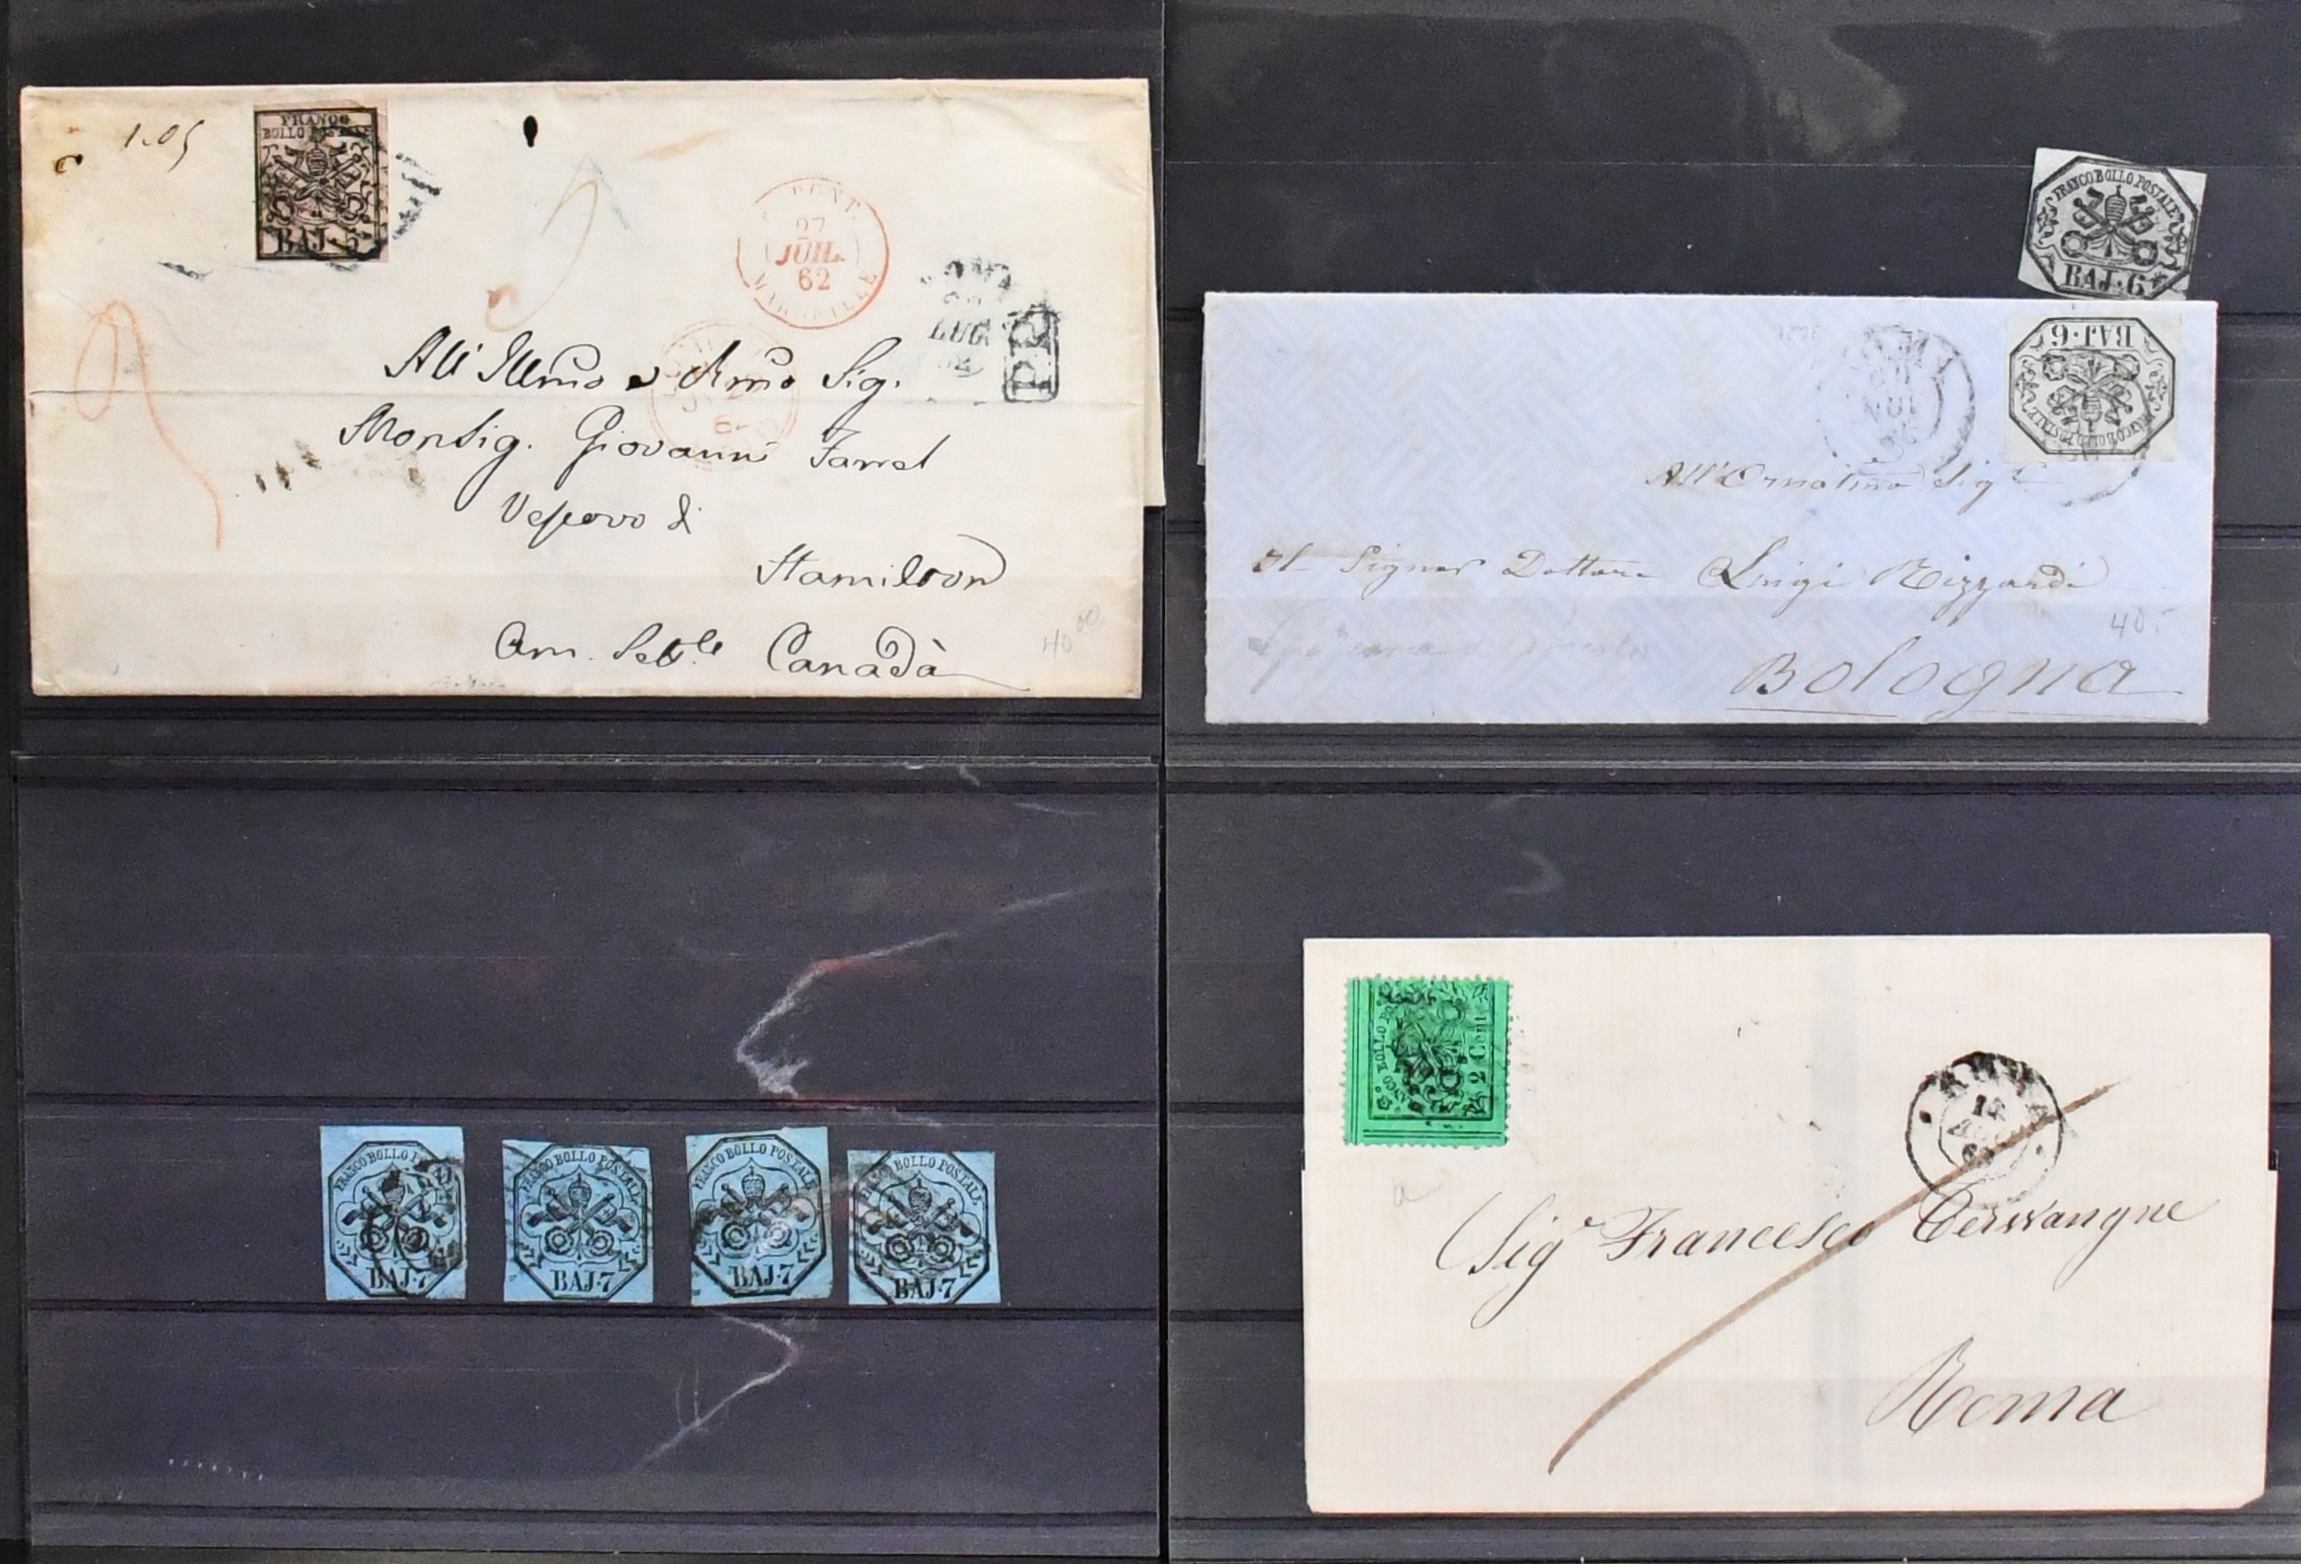 1.05
FRANCO
BOLLO POSTALE
BAJ·5
PONT.
27
JUIL.
62
MARSEILLE
LUG
P.D.
All' Illmo e Rmo Sig.
Monsig. Giovanni Farrel
Vescovo di
Hamilton
Am. Set.le Canadà
40 00
FRANCO BOLLO POSTALE
BAJ·6
BAJ·6
FRANCO BOLLO POSTALE
All'
Signor Dottore Luigi Rizzardi
40.-
Bologna
FRANCO BOLLO
BAJ·7
FRANCO BOLLO POSTALE
BAJ·7
FRANCO BOLLO POSTALE
BAJ·7
BOLLO POSTALE
BAJ·7
BOLLO
2 Cent.
ROMA
a
Sigr Francesco
Roma